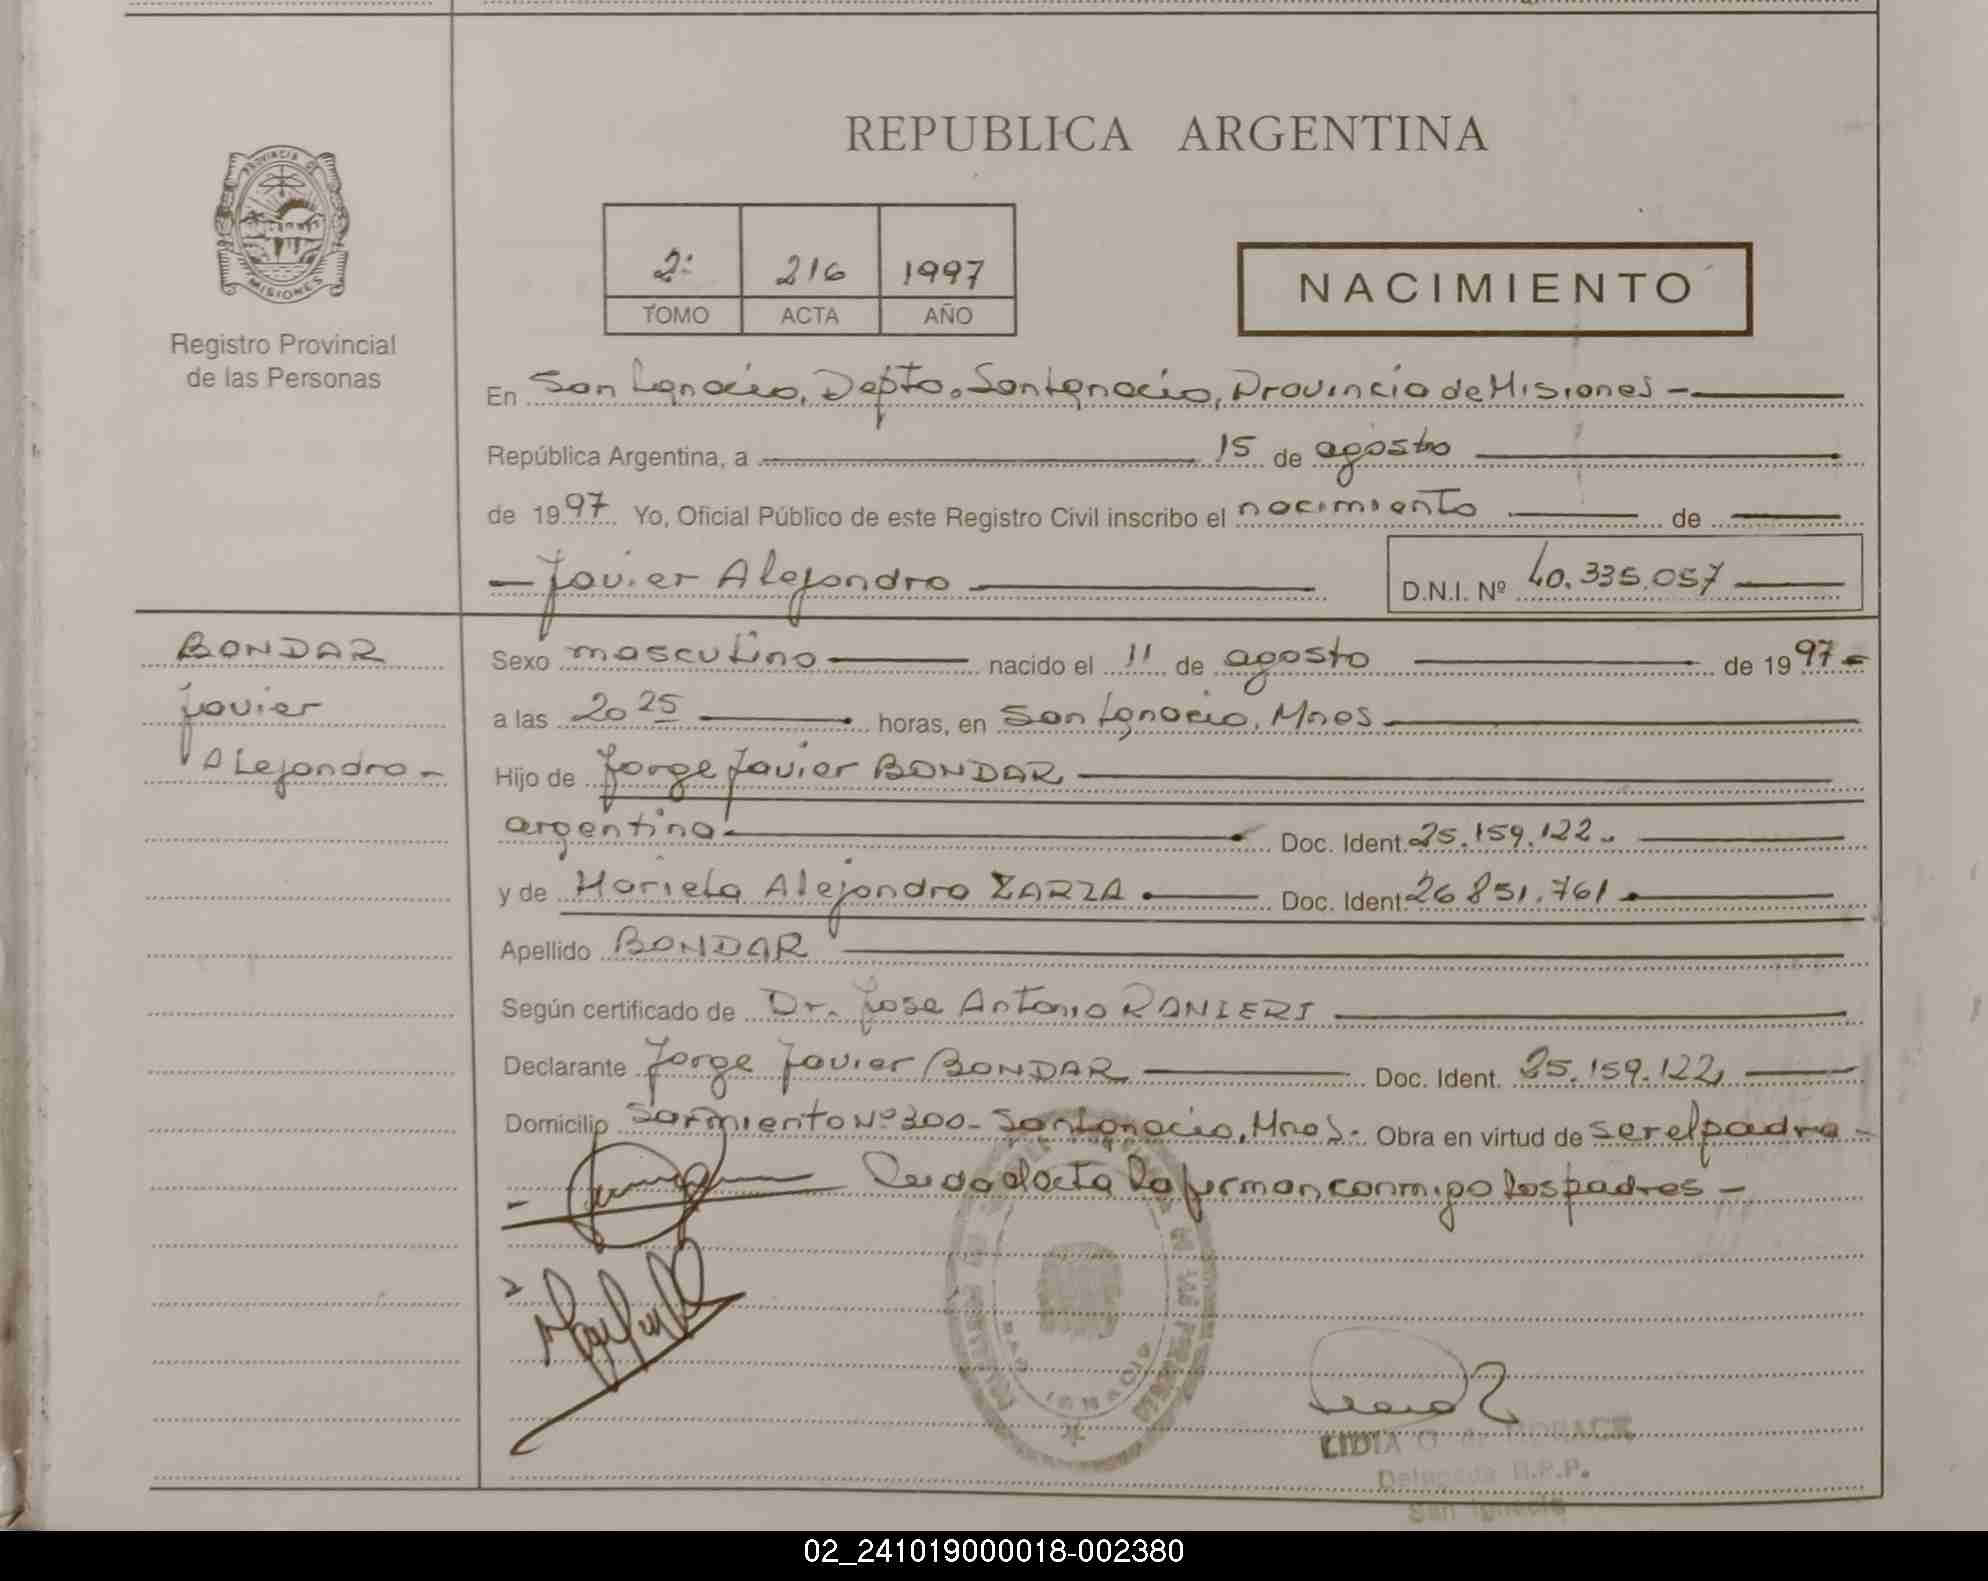 REPUBLICA ARGENTINA
PROVINCIA DE
MISIONES
Registro Provincial
de las Personas
2º 216 1997
TOMO ACTA AÑO
NACIMIENTO
En San Ignacio, Depto. San Ignacio, Provincia de Misiones -
República Argentina, a 15 de agosto
de 1997 Yo, Oficial Público de este Registro Civil inscribo el nacimiento de
- Javier Alejandro
D.N.I. Nº 40.335.057
BONDAR
Javier
Alejandro -
Sexo masculino nacido el 11 de agosto de 1997 -
a las 20 25 horas, en San Ignacio, Mnes
Hijo de Jorge Javier BONDAR
argentina Doc. Ident. 25.159.122.
y de Mariela Alejandra ZARZA Doc. Ident. 26 851.761
Apellido BONDAR
Según certificado de Dr. Jose Antonio RANIERI
Declarante Jorge Javier BONDAR Doc. Ident. 25.159.122
Domicilio Sarmiento Nº 300 - San Ignacio, Mnes. Obra en virtud de ser el padre -
Leida el acta la firman conmigo los padres -
SAN IGNACIO
LIDIA O. de
Delegada R.P.P.
San Ignacio
02_241019000018-002380